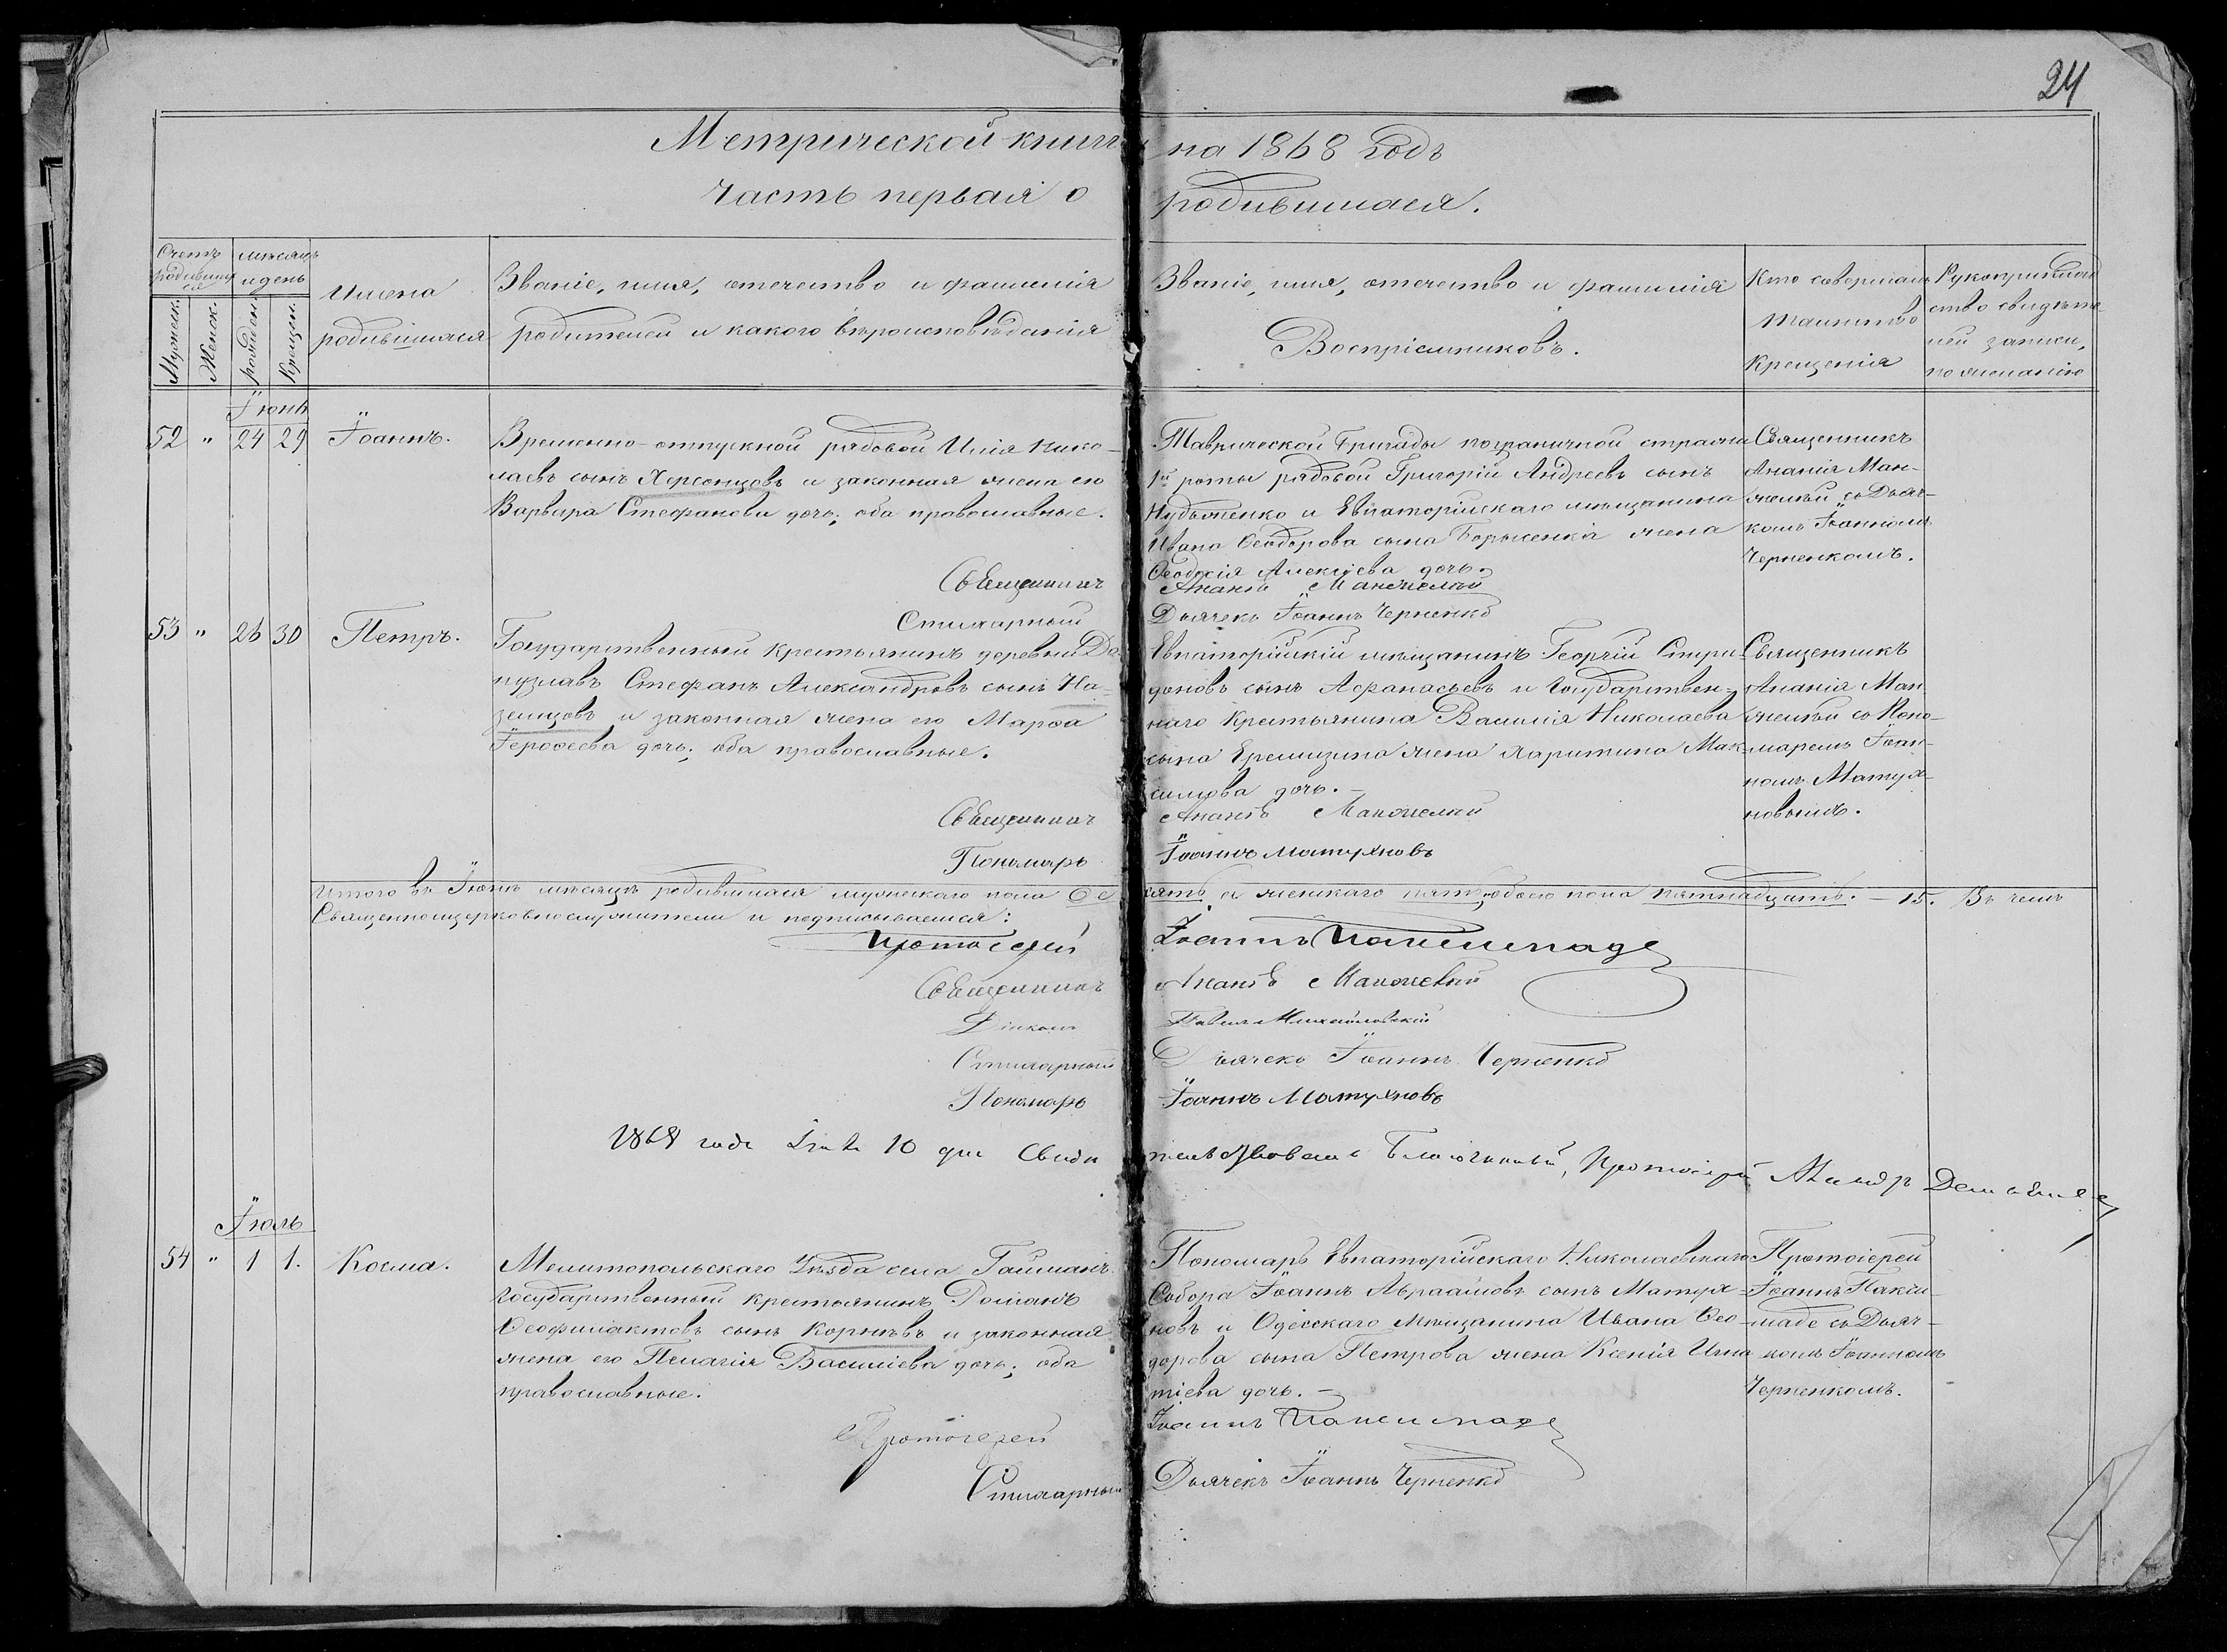 24
Метрической книги на 1868 годъ
Часть первая о родившихся.
Счетъ родившихся
Мужеск. Женск.
мѣсяцъ и день
рожден. Крещен.
Имена родившихся
Званіе, имя, отечество и фамилія
родителей и какого вѣроисповѣданія
Званіе, имя, отечество и фамилія
Воспріемниковъ.
Кто совершалъ
таинство
крещенія
Рукоприклад
ство свидѣте
лей записи,
по желанію
Іюнь
52 " 24 29 Іоаннъ.
Временно-отпускной рядовой Илія Нико-
лаевъ сынъ Херсонцовъ и законная жена его
Варвара Стефанова дочь; оба православные.
Таврической бригады пограничной стражи
1й роты рядовой Григорій Андреевъ сынъ
Нудьженко и Евпаторійскаго мѣщанина
Ивана Ѳеодорова сына Борисенка жена
Ѳеодосія Алексіева дочь.
Священникъ
Ананія Ман-
желѣй съ Дьяч-
комъ Іоанномъ
Черненкомъ.
Священникъ Ананія Манжелѣй
Стихарный Дьячекъ Іоаннъ Черненко
53 " 26 30 Петръ.
Государственный крестьянинъ деревни До
нузлавъ Стефанъ Александровъ сынъ На-
земцовъ и законная жена его Марѳа
Іероѳеева дочь; оба православные.
Евпаторійскій мѣщанинъ Георгій Спири-
доновъ сынъ Аѳанасьевъ и Государствен-
наго крестьянина Василія Николаева
сына Еремизина жена Харитина Мак-
симова дочь.-
Священникъ
Ананія Ман
желѣй съ Поно-
маремъ Іоан-
номъ Матух-
новымъ.
Священникъ Ананія Манжелѣй
Пономарь Іоаннъ Матухновъ
Итого въ Іюнѣ мѣсяцѣ родившихся мужескаго пола десять, а женскаго пять; обоего пола пятнадцать. - 15. Въ чемъ
Священноцерковнослужители и подписываемся:
Протоіерей Іоаннъ Паксимаде
Священникъ Ананія Манжелѣй
Діаконъ Павелъ Михайловскій
Стихарный Дьячекъ Іоаннъ Черненко
Пономарь Іоаннъ Матухновъ
1868 года 10 дня Свидѣтельствовалъ Благочинный, Протоіерей
Іюль
54 " 1 1. Косма.
Мелитопольскаго Уѣзда села Гайманъ
государственный крестьянинъ Романъ
Ѳеофилактовъ сынъ Корнѣевъ и законная
жена его Пелагія Василіева дочь; оба
православные.
Пономарь Евпаторійскаго Николаевскаго
Собора Іоаннъ Авраамовъ сынъ Матух-
новъ и Одесскаго мѣщанина Ивана Ѳео-
дорова сына Петрова жена Ксенія Игна
тіева дочь.-
Протоіерей
Іоаннъ Пакси-
маде съ Дьяч-
комъ Іоанномъ
Черненкомъ.
Протоіерей Іоаннъ Паксимаде
Стихарный Дьячекъ Іоаннъ Черненко